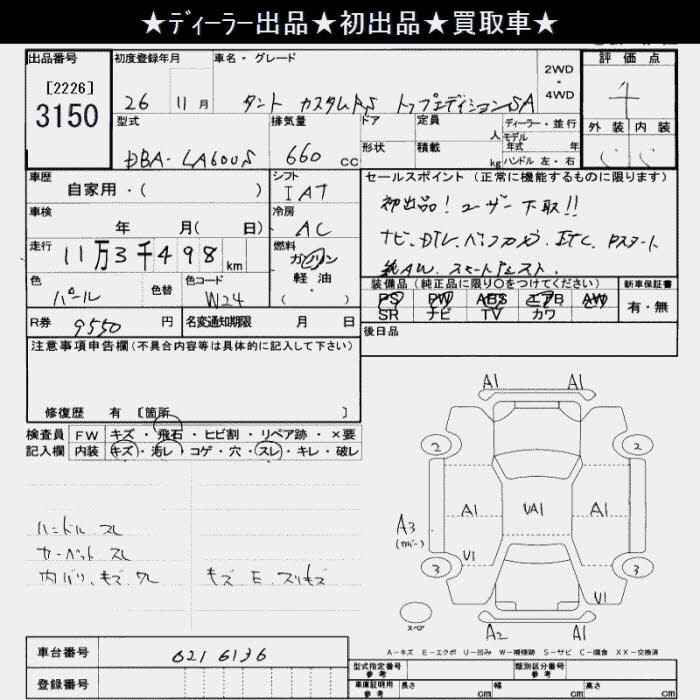 ★ディーラー出品★初出品★買取車★
出品番号 初度登録年月 車名・グレード 2WD・4WD 評価点
[2226]
3150
26 11月 タント カスタムRS トップエディションSA 4
型式 排気量 ドア 定員 人 ディーラー・並行 外装 内装
モデル年式 年
DBA-LA600S 660cc 形状 積載 kg ハンドル 左・右
車歴 シフト セールスポイント(正常に機能するものに限ります)
自家用・( ) IAT 初出品!ユーザー下取!!
車検 冷房
年 月( 日) AC
走行 燃料
11万3千498km ガソリン・軽油・( )
ナビ.DTV.バックカメ.ETC.Pスタート
純AW.スマートアシスト.
色 色替 色コード
パール W24
装備品(純正品に限り〇をつけてください) 新車保証書
PS PW ABS エアB AW 有・無
SR ナビ TV カワ
R券 9550円 名変通知期限 月 日
後日品
注意事項申告欄(不具合内容等は具体的に記入して下さい)
修復歴 有 〔箇所 〕
検査員 FW キズ・飛石・ヒビ割・リペア跡・×要
記入欄 内装 キズ・汚レ・コゲ・穴・スレ・キレ・破レ
A1 A1
2 2
A1 UA1 A1
A3
(カバー)
U1
3 3
U1
スペア
A2 A1
ハンドル スレ
カーペット スレ
内バリ、キズ、スレ キズ E スリキズ
A-キズ E-エクボ U-凹み W-補修跡 S-サビ C-腐食 XX-交換済
車台番号 6216136
登録番号
型式指定番号 参考 類別区分番号 参考
車庫証明用 参考 長さ cm 幅 cm 高さ cm